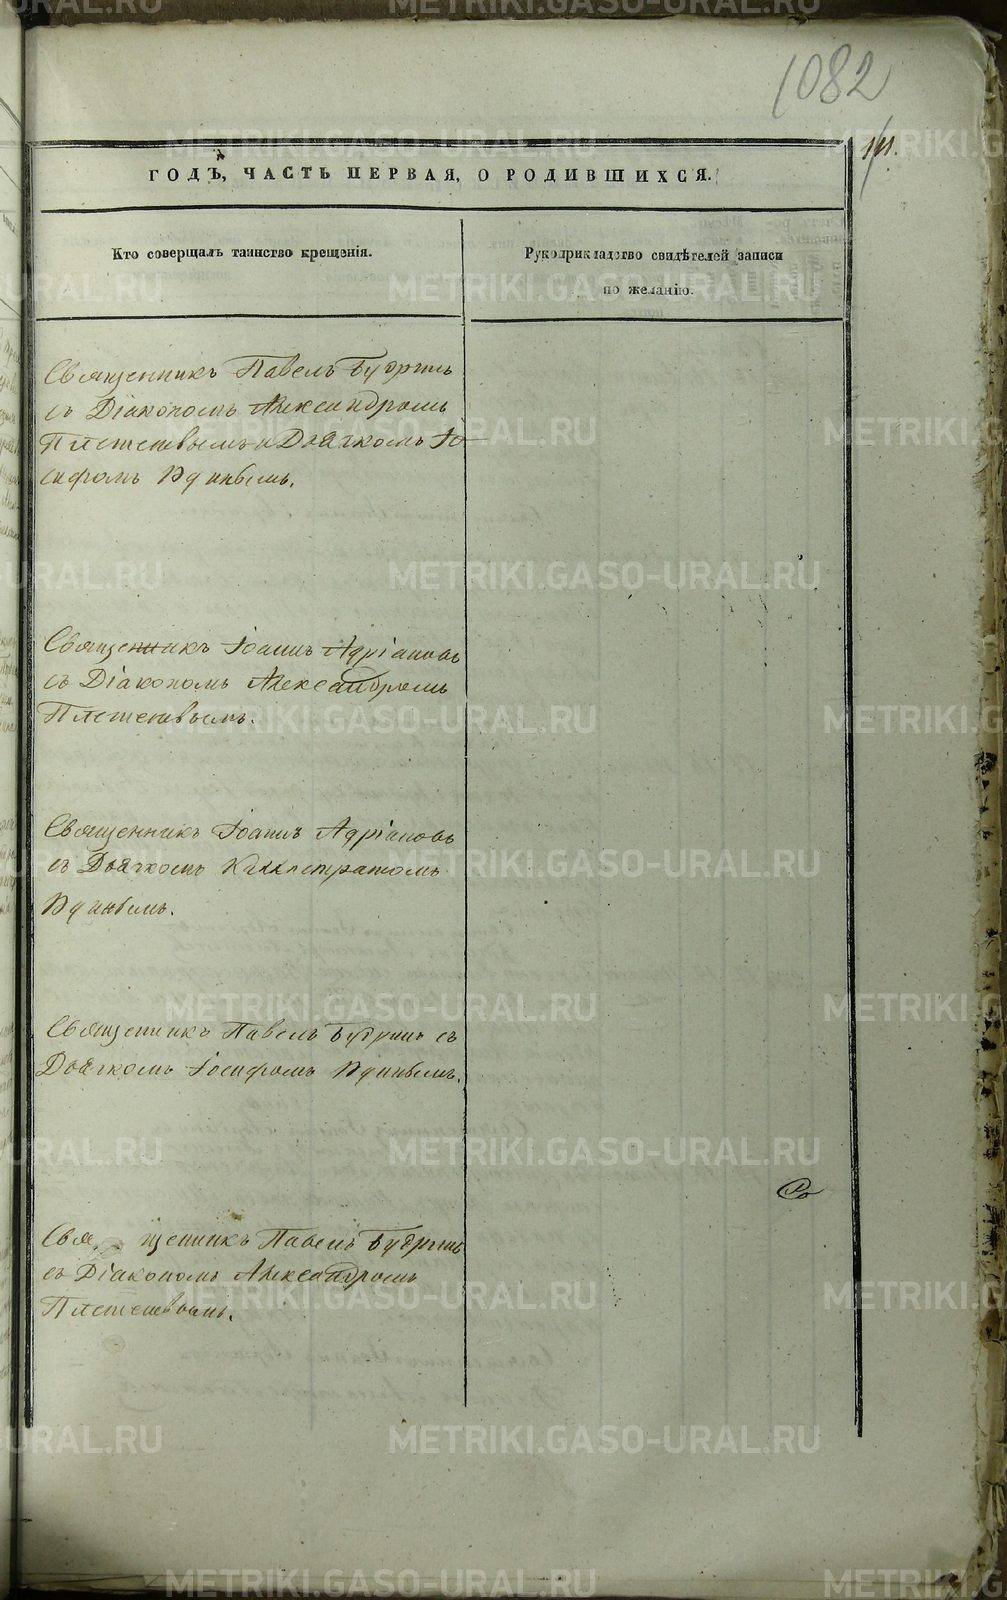 1082
141.
ГОДЪ, ЧАСТЬ ПЕРВАЯ, О РОДИВШИХСЯ.
Кто совершалъ таинство крещенія.
Рукоприкладство свидѣтелей записи
по желанію.
Священникъ Павелъ Будринъ
съ Діакономъ Александромъ
Плетеневымъ и Дьячкомъ Іо-
сифомъ Ядинымъ.
Священникъ Іоаннъ Адріановъ
съ Діакономъ Александромъ
Плетеневымъ.
Священникъ Іоаннъ Адріановъ
съ Дьячкомъ Каллистратомъ
Ядинымъ.
Священникъ Павелъ Будринъ съ
Дьячкомъ Іосифомъ Ядинымъ.
Священникъ Павелъ Будринъ
съ Діакономъ Александромъ
Плетеневымъ.
METRIKI.GASO-URAL.RU